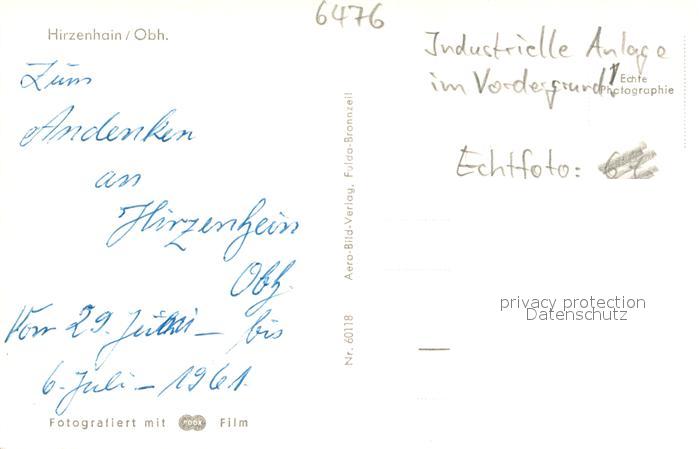 6476
Hirzenhain / Obh.
Zum
Andenken
an
Hirzenhein
Obh.
Vom 29. Juni – bis
6. Juli – 1961.
Fotografiert mit ADOX Film
Nr. 60118 Aero-Bild-Verlag, Fulda-Bronnzell
Industrielle Anlage
im Vordergrund!
Echte
Photographie
Echtfoto:
privacy protection
Datenschutz